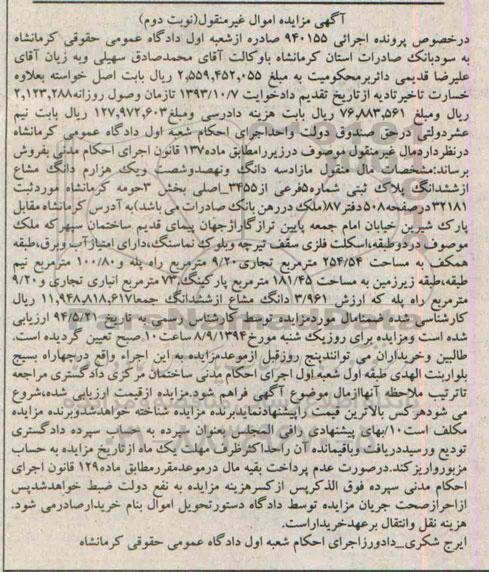 آگهی مزایده اموال غیرمنقول(نوبت دوم)
درخصوص پرونده اجرائی ۹۴۰۱۵۵ صادره ازشعبه اول دادگاه عمومی حقوقی کرمانشاه
به سودبانک صادرات استان کرمانشاه باوکالت آقای محمدصادق سهیلی وبه زیان آقای
علیرضا قدیمی دائربرمحکومیت به مبلغ ۲,۵۵۹,۴۵۲,۰۵۵ ریال بابت اصل خواسته بعلاوه
خسارت تاخیرتادیه ازتاریخ تقدیم دادخواست ۱۳۹۳/۱۰/۷ تازمان وصول روزانه۲,۱۲۳,۲۸۸
ریال ومبلغ ۷۶,۸۸۳,۵۶۱ ریال بابت هزینه دادرسی ومبلغ۱۲۷,۹۷۲,۶۰۳ ریال بابت نیم
عشردولتی درحق صندوق دولت واحداجرای احکام شعبه اول دادگاه عمومی کرمانشاه
درنظرداردمال غیرمنقول موصوف درزیررامطابق ماده۱۳۷ قانون اجرای احکام مدنی بفروش
برساند:مشخصات مال منقول مازادسه دانگ ونهصدوشصت ویک هزارم دانگ مشاع
ازششدانگ پلاک ثبتی شماره۵فرعی از۳۴۵۵_اصلی بخش ۳حومه کرمانشاه موردثبت
۳۲۱۸۱درصفحه۵۰۸دفتر۸۷(ملک دررهن بانک صادرات می باشد)به آدرس کرمانشاه مقابل
پارک شیرین خیابان امام جمعه پایین ترازگاراژجهان پیمای قدیم ساختمان سپهرکه ملک
موصوف دردوطبقه،اسکلت فلزی سقف تیرچه وبلوک نماسنگ،دارای امتیازآب وبرق،طبقه
همکف به مساحت ۲۵۴/۵۴ مترمربع تجاری۹/۲۰ مترمربع راه پله و۱۰۰/۸۰ مترمربع نیم
طبقه،طبقه زیرزمین به مساحت ۱۸۱/۴۵ مترمربع پارکینگ،۷۳ مترمربع انباری تجاری و۹/۲۰
مترمربع راه پله که ارزش ۳/۹۶۱ دانگ مشاع ازششدانگ جمعا۱۱,۹۴۸,۸۱۸,۶۱۷ ریال
کارشناسی شده ضمنامال موردمزایده توسط کارشناس رسمی به تاریخ ۹۴/۵/۲۱ ارزیابی
شده است ومزایده برای روزیک شنبه مورخ۸/۹/۱۳۹۴ ساعت۱۰صبح تعیین گردیده است.
طالبین وخریداران می توانندپنج روزقبل ازموعدمزایده به این اجراء واقع درچهاراه بسیج
بلواربنت الهدی طبقه اول شعبه اول اجرای احکام مدنی ساختمان مرکزی دادگستری مراجعه
تاترتیب ملاحظه آنهاازمال موضوع آگهی فراهم شود.مزایده ازقیمت ارزیابی شده،شروع
می شودهرکس بالاترین قیمت راپیشنهادنمایدبرنده مزایده شناخته خواهدشدوبرنده مزایده
مکلف است۱۰/بهای پیشنهادی رافی المجلس بعنوان سپرده به حساب سپرده دادگستری
تودیع ورسیددریافت وباقیمانده آن راحداکثرظرف مهلت یک ماه ازتاریخ مزایده به حساب
مزبورواریزکند.درصورت عدم پرداخت بقیه مال درموعدمقررمطابق ماده۱۲۹ قانون اجرای
احکام مدنی سپرده فوق الذکرپس ازکسرهزینه مزایده به نفع دولت ضبط خواهدشدپس
ازاحرازصحت جریان مزایده توسط دادگاه دستورتحویل اموال بنام خریدارصادرمی شود.
هزینه نقل وانتقال برعهدخریداراست.
ایرج شکری_دادورزاجرای احکام شعبه اول دادگاه عمومی حقوقی کرمانشاه